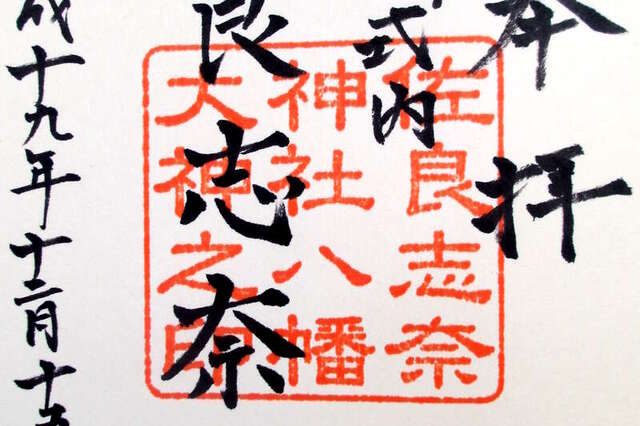 奉拝
式内
良志奈
成十九年十二月十五
佐良志奈
神社八幡
大神之印